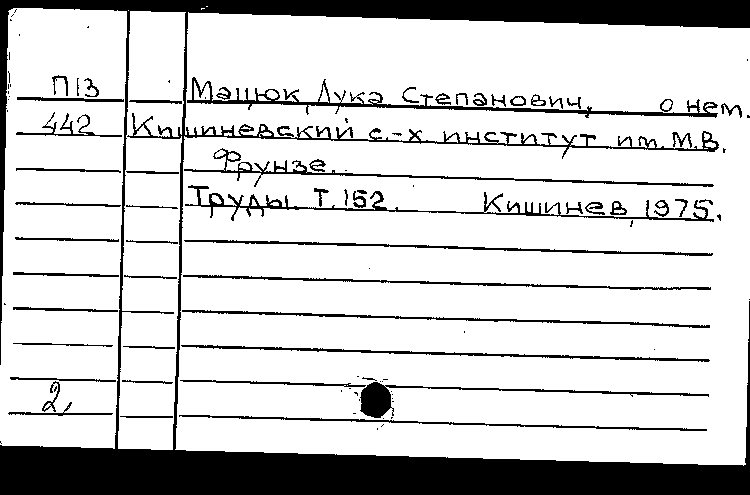 П13 Мацюк, Лука Степанович, о нем.
442 Кишиневский с.-х. институт им. М.В.
Фрунзе.
Труды. Т.152. Кишинев, 1975.
2